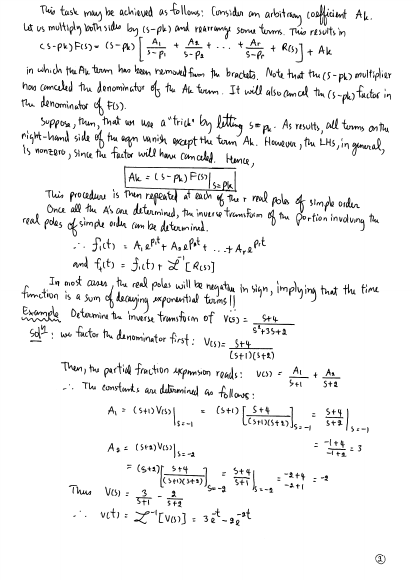 This task may be achieved as follows: Consider an arbitrary coefficient Ak.
Let us multiply both sides by (s-pk) and rearrange some terms. This results in
(s-pk)F(s) = (s-pk) [ A1/(s-p1) + A2/(s-p2) + ... + Ar/(s-pr) + R(s) ] + Ak
in which the Ak term has been removed from the brackets. Note that the (s-pk) multiplier
has canceled the denominator of the Ak term. It will also cancel the (s-pk) factor in
the denominator of F(s).
Suppose, then, that we use a "trick" by letting s=pk. As results, all terms on the
right-hand side of the eqn vanish except the term Ak. However, the LHS, in general,
is nonzero, since the factor will have canceled. Hence,
Ak = (s-pk) F(s)|s=pk
This procedure is then repeated at each of the r real poles of simple order.
Once all the A's are determined, the inverse transform of the portion involving the
real poles of simple order can be determined.
∴ f1(t) = A1 e^p1t + A2 e^p2t + ... + Ar e^prt
and f(t) = f1(t) + L^-1 [R(s)]
In most cases, the real poles will be negative in sign, implying that the time
function is a sum of decaying exponential terms!!
Example Determine the inverse transform of V(s) = (s+4)/(s²+3s+2)
Sol'n: we factor the denominator first: V(s) = (s+4)/((s+1)(s+2))
Then, the partial fraction expansion reads: V(s) = A1/(s+1) + A2/(s+2)
∴ The constants are determined as follows:
A1 = (s+1)V(s)|s=-1 = (s+1) [ (s+4)/((s+1)(s+2)) ]s=-1 = (s+4)/(s+2)|s=-1
= (-1+4)/(-1+2) = 3
A2 = (s+2)V(s)|s=-2
= (s+2) [ (s+4)/((s+1)(s+2)) ]s=-2 = (s+4)/(s+1)|s=-2 = (-2+4)/(-2+1) = -2
Thus V(s) = 3/(s+1) - 2/(s+2)
∴ v(t) = L^-1 [V(s)] = 3e^-t - 2e^-2t